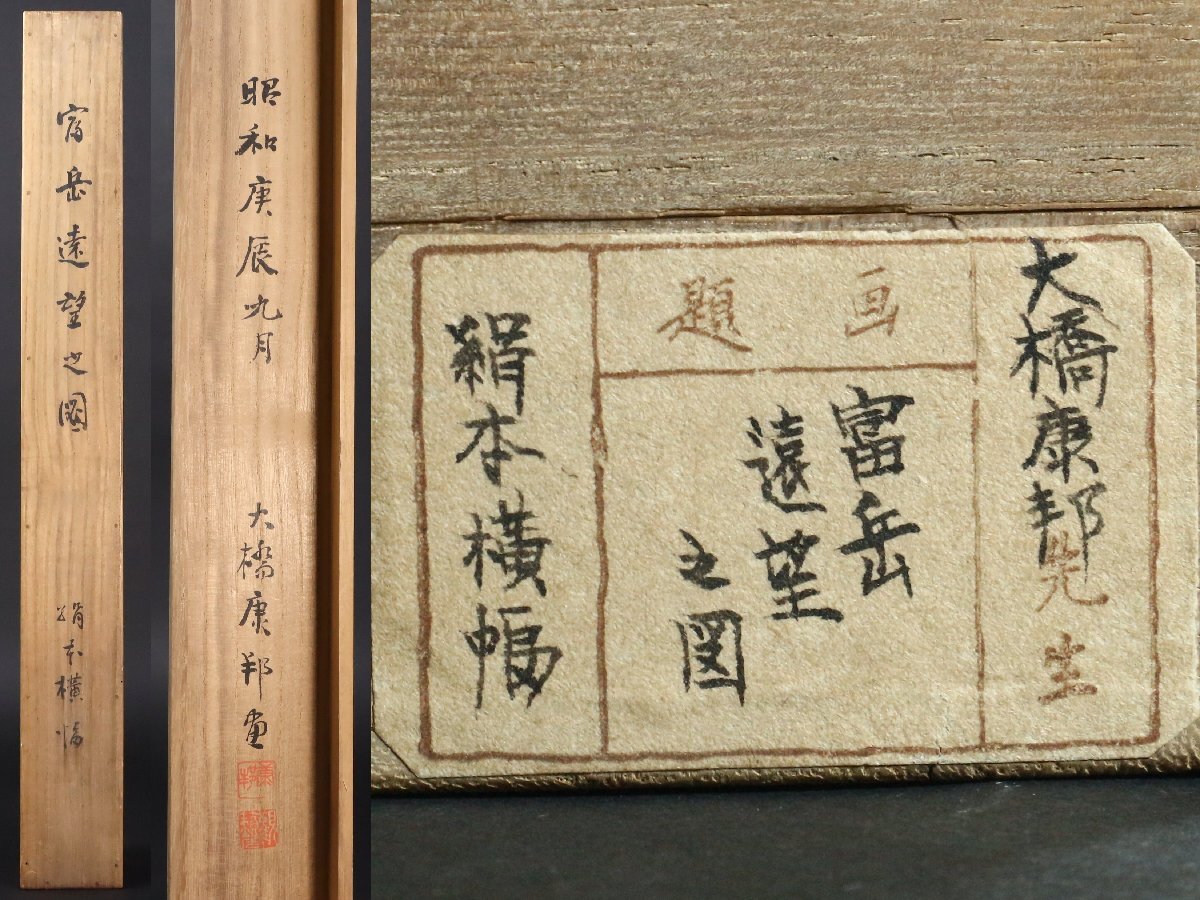 富岳遠望之圖
絹本横幅
昭和庚辰九月
大橋康邦画
大橋康邦先生
画題
富岳
遠望
之図
絹本横幅